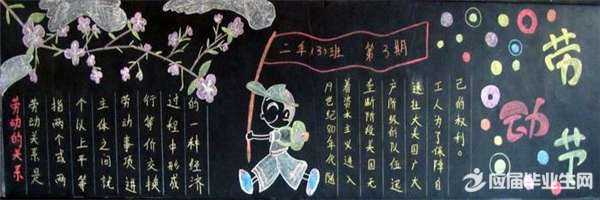 二年(3)班 第3期
劳动的关系
劳动关系是
指两个或两
个以上平等
主体之间就
劳动事项进
行等价交换
过程中形成
的一种经济
19世纪80年代随
着资本主义进入
垄断阶段美国无
产阶级的队伍迅
速壮大美国广大
工人为了保障自
己的权利。
劳动节
应届毕业生网